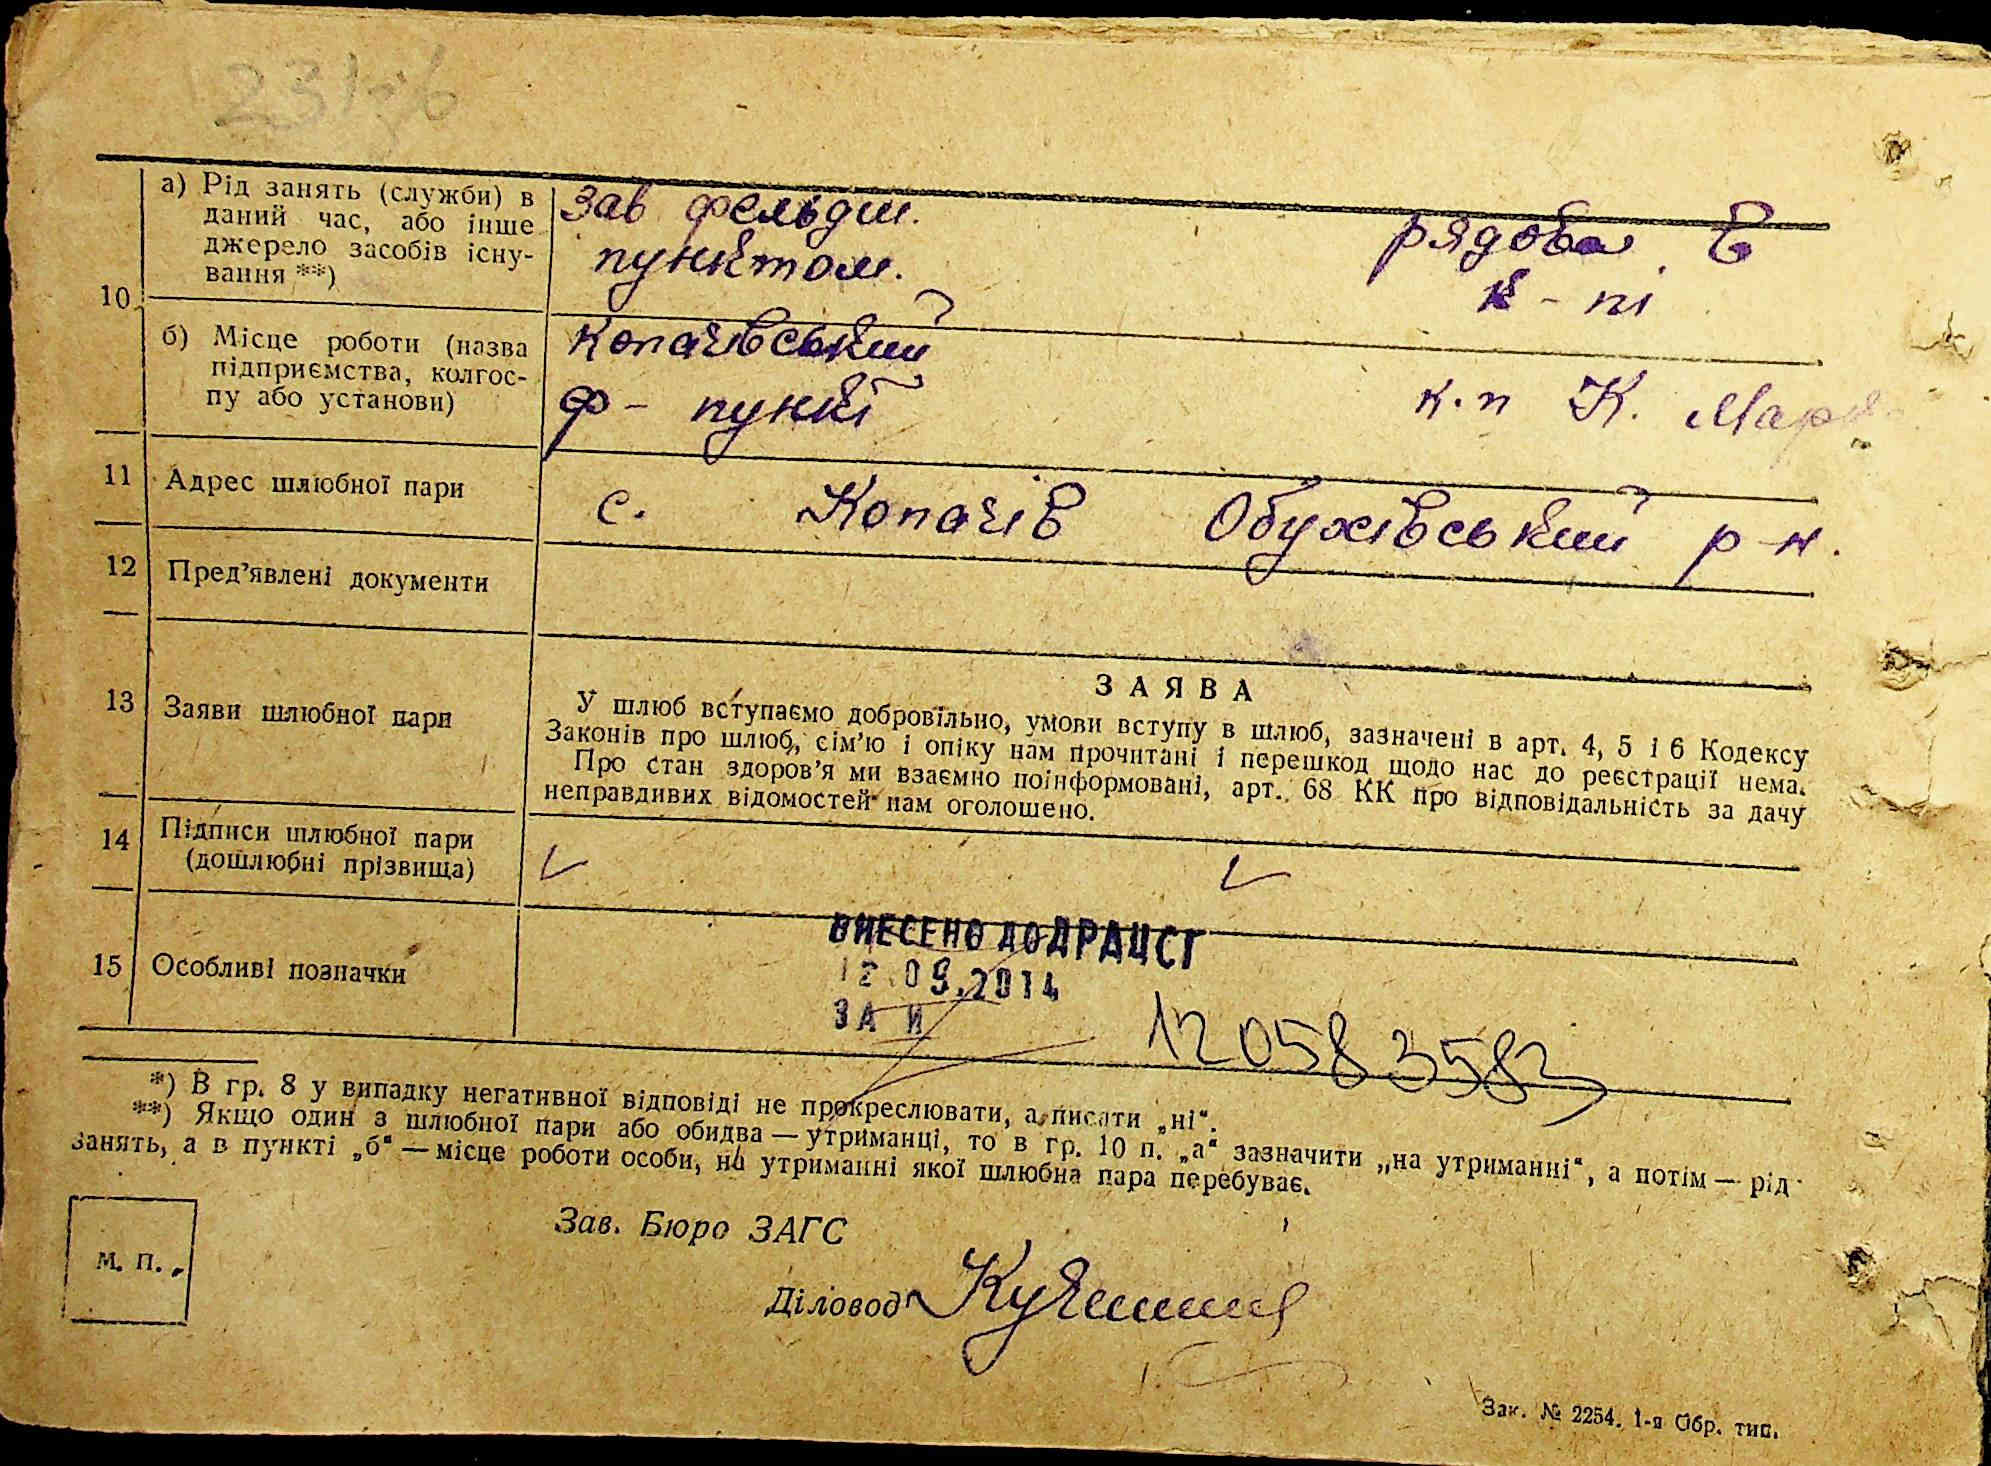 231зв
10
а) Рід занять (служби) в
даний час, або інше
джерело засобів існу-
вання **)
зав фельдш.
пунктом.
рядова в
к-пі
б) Місце роботи (назва
підприємства, колгос-
пу або установи)
Копачівський
ф- пункт
к.п К. Маркс
11 Адрес шлюбної пари
с. Копачів Обухівський р-н.
12 Пред’явлені документи
13 Заяви шлюбної пари
ЗАЯВА
У шлюб вступаємо добровільно, умови вступу в шлюб, зазначені в арт. 4, 5 і 6 Кодексу
Законів про шлюб, сім’ю і опіку нам прочитані і перешкод щодо нас до реєстрації нема.
Про стан здоров’я ми взаємно поінформовані, арт. 68 КК про відповідальність за дачу
неправдивих відомостей нам оголошено.
14 Підписи шлюбної пари
(дошлюбні прізвища)
15 Особливі позначки
ВНЕСЕНО ДО ДРАЦСГ
12.09.2014
ЗА И
120583583
*) В гр. 8 у випадку негативної відповіді не прокреслювати, а писати „ні“.
**) Якщо один з шлюбної пари або обидва — утриманці, то в гр. 10 п. „а“ зазначити „на утриманні“, а потім — рід
занять, а в пункті „б“ — місце роботи особи, на утриманні якої шлюбна пара перебуває.
м. п.
Зав. Бюро ЗАГС
Діловод
Зак. № 2254. 1-я Обр. тип.